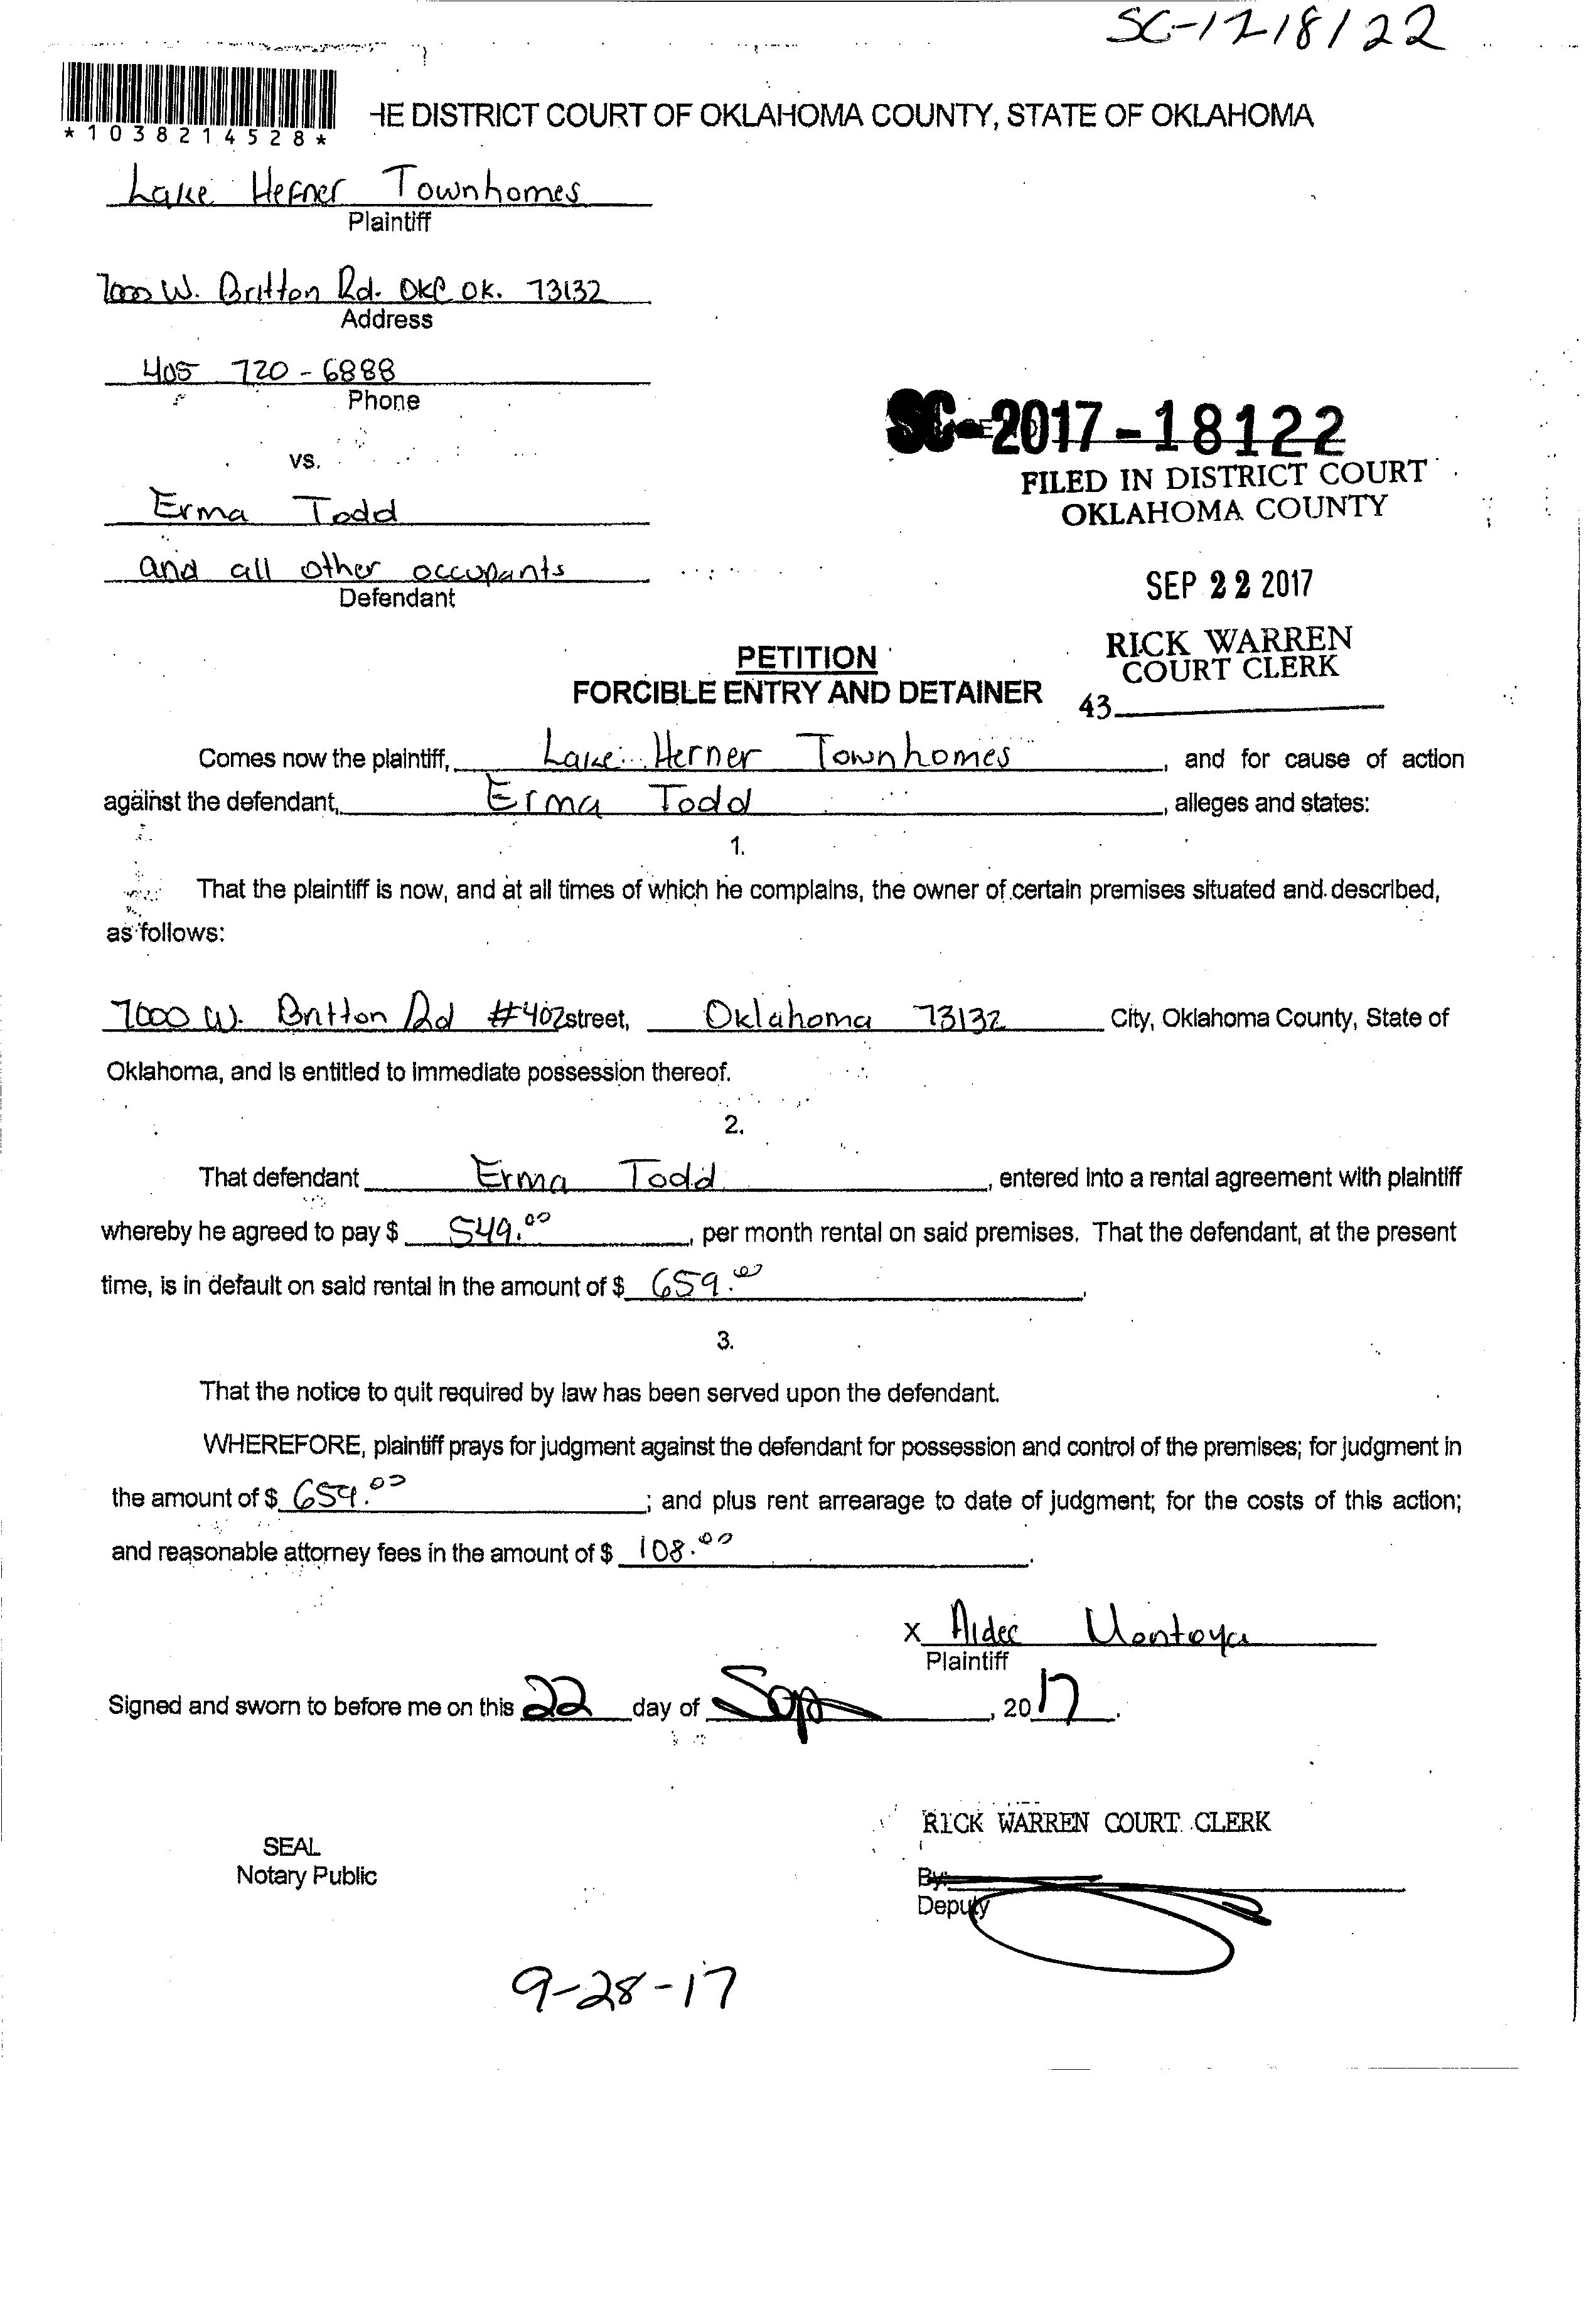 SC-17-18122
*1038214528*
HE DISTRICT COURT OF OKLAHOMA COUNTY, STATE OF OKLAHOMA
Lake Hefner Townhomes
Plaintiff
7000 W. Britton Rd. OKC OK. 73132
Address
405 720-6888
Phone
vs.
SC-2017-18122
FILED IN DISTRICT COURT
OKLAHOMA COUNTY
Erma Todd
and all other occupants
Defendant
SEP 22 2017
RICK WARREN
COURT CLERK
43
PETITION
FORCIBLE ENTRY AND DETAINER
Comes now the plaintiff, Lake Hefner Townhomes, and for cause of action
against the defendant, Erma Todd, alleges and states:
1.
That the plaintiff is now, and at all times of which he complains, the owner of certain premises situated and described,
as follows:
7000 W. Britton Rd #402 street, Oklahoma 73132 City, Oklahoma County, State of
Oklahoma, and is entitled to immediate possession thereof.
2.
That defendant Erma Todd, entered into a rental agreement with plaintiff
whereby he agreed to pay $ 549.00, per month rental on said premises. That the defendant, at the present
time, is in default on said rental in the amount of $ 659.00.
3.
That the notice to quit required by law has been served upon the defendant.
WHEREFORE, plaintiff prays for judgment against the defendant for possession and control of the premises; for judgment in
the amount of $ 659.00; and plus rent arrearage to date of judgment; for the costs of this action;
and reasonable attorney fees in the amount of $ 108.00.
X Aidee Montoya
Plaintiff
Signed and sworn to before me on this 22 day of Sep, 2017.
RICK WARREN COURT CLERK
SEAL
Notary Public
By:
Deputy
9-28-17